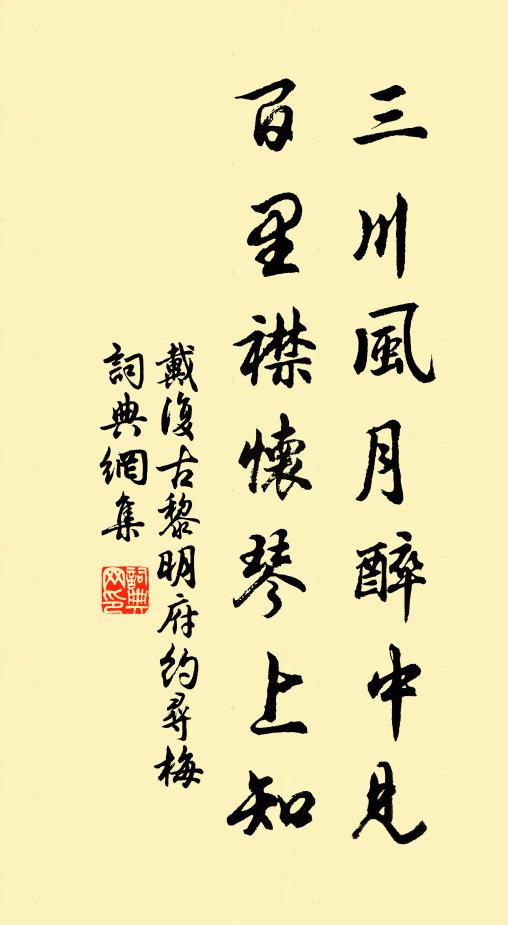 三川風月醉中見
百里襟懷琴上知
戴復古黎明府約尋梅
詞典網集
詞典
网印